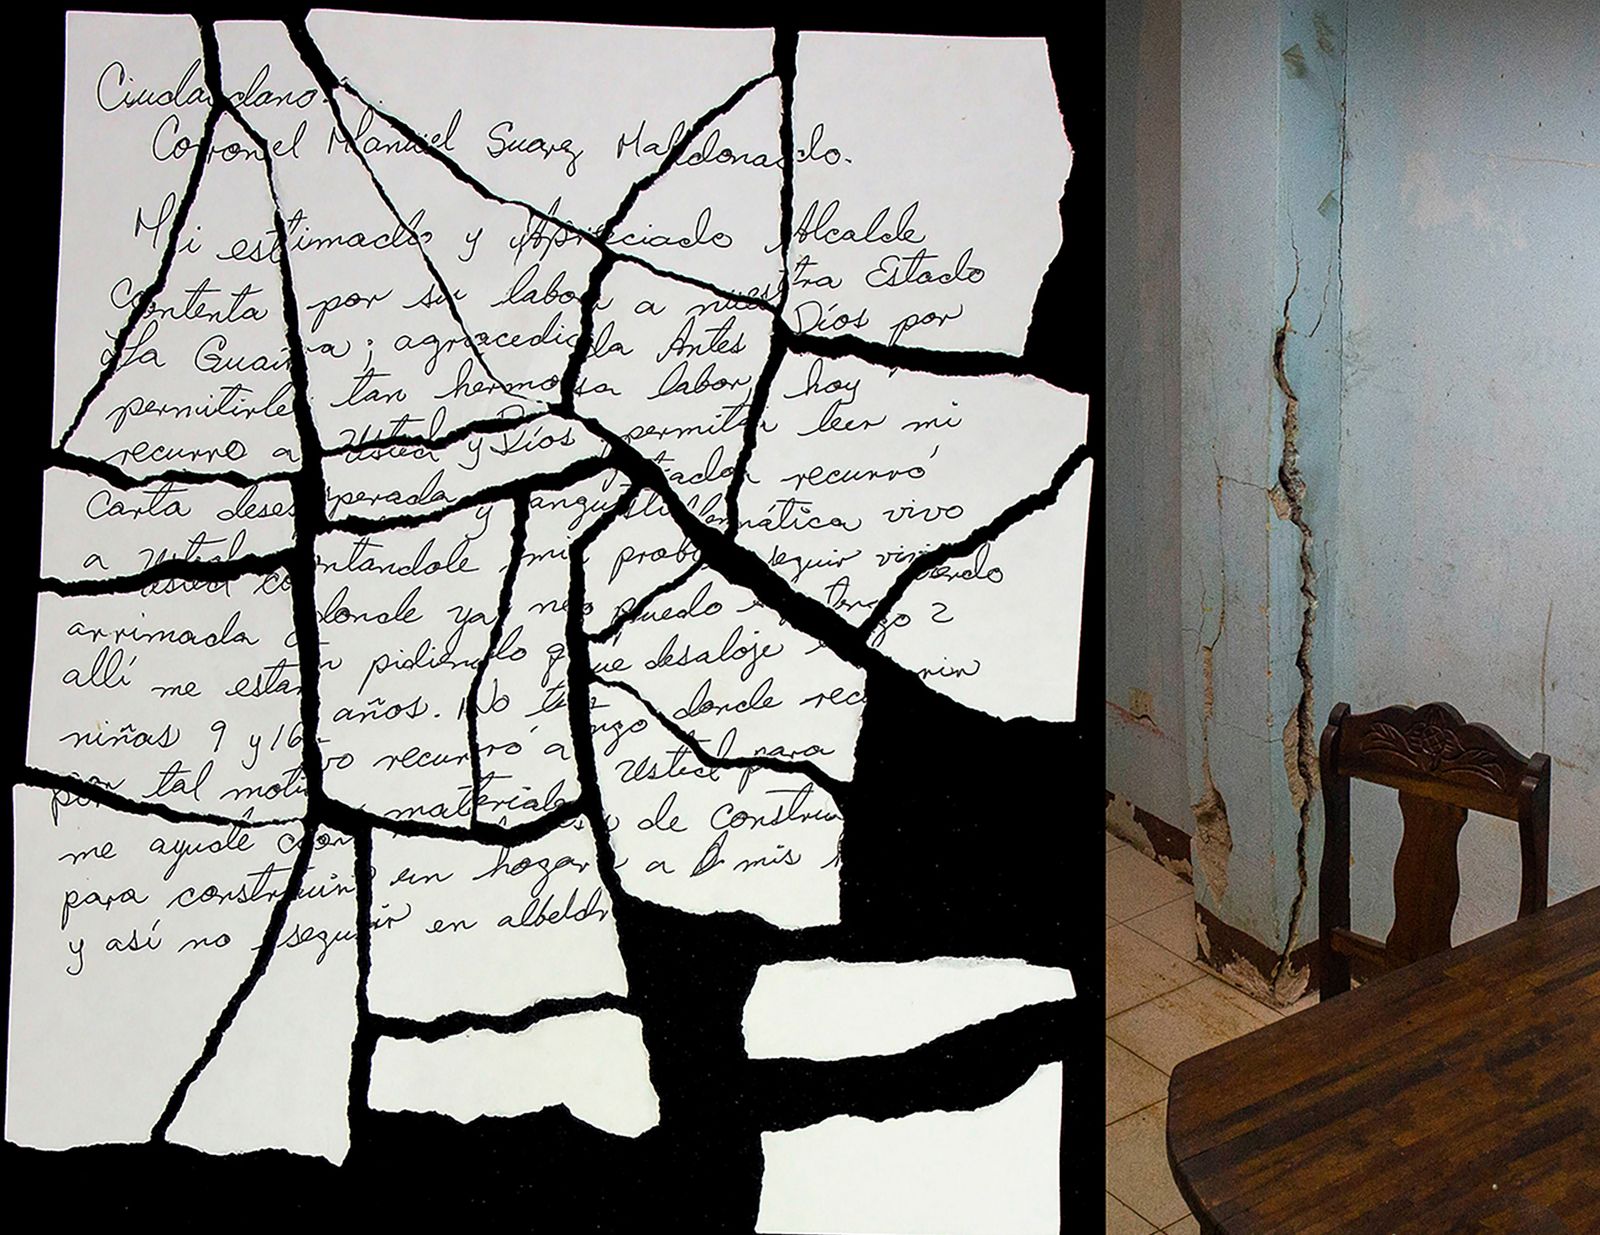 Ciudadano.
Coronel Manuel Suarez Maldonado.
Mi estimado y Apreciado Alcalde
Contenta por su labor a nuestra Estado
La Guaira; agradecida Antes Díos por
permitirle tan hermosa labor, hoy
recurro a Usted y Díos permitan leer mi
Carta desesperada y angustiada recurró
a Usted contandole mi problemática vivo
arrimada donde ya no puedo seguir viviendo
allí me están pidiendo que desaloje tengo 2
niñas 9 y 16 años. No tengo donde
por tal motivo recurró a Usted para
me ayudé con materiales de
para construir un hogar a mis
y así no seguir en